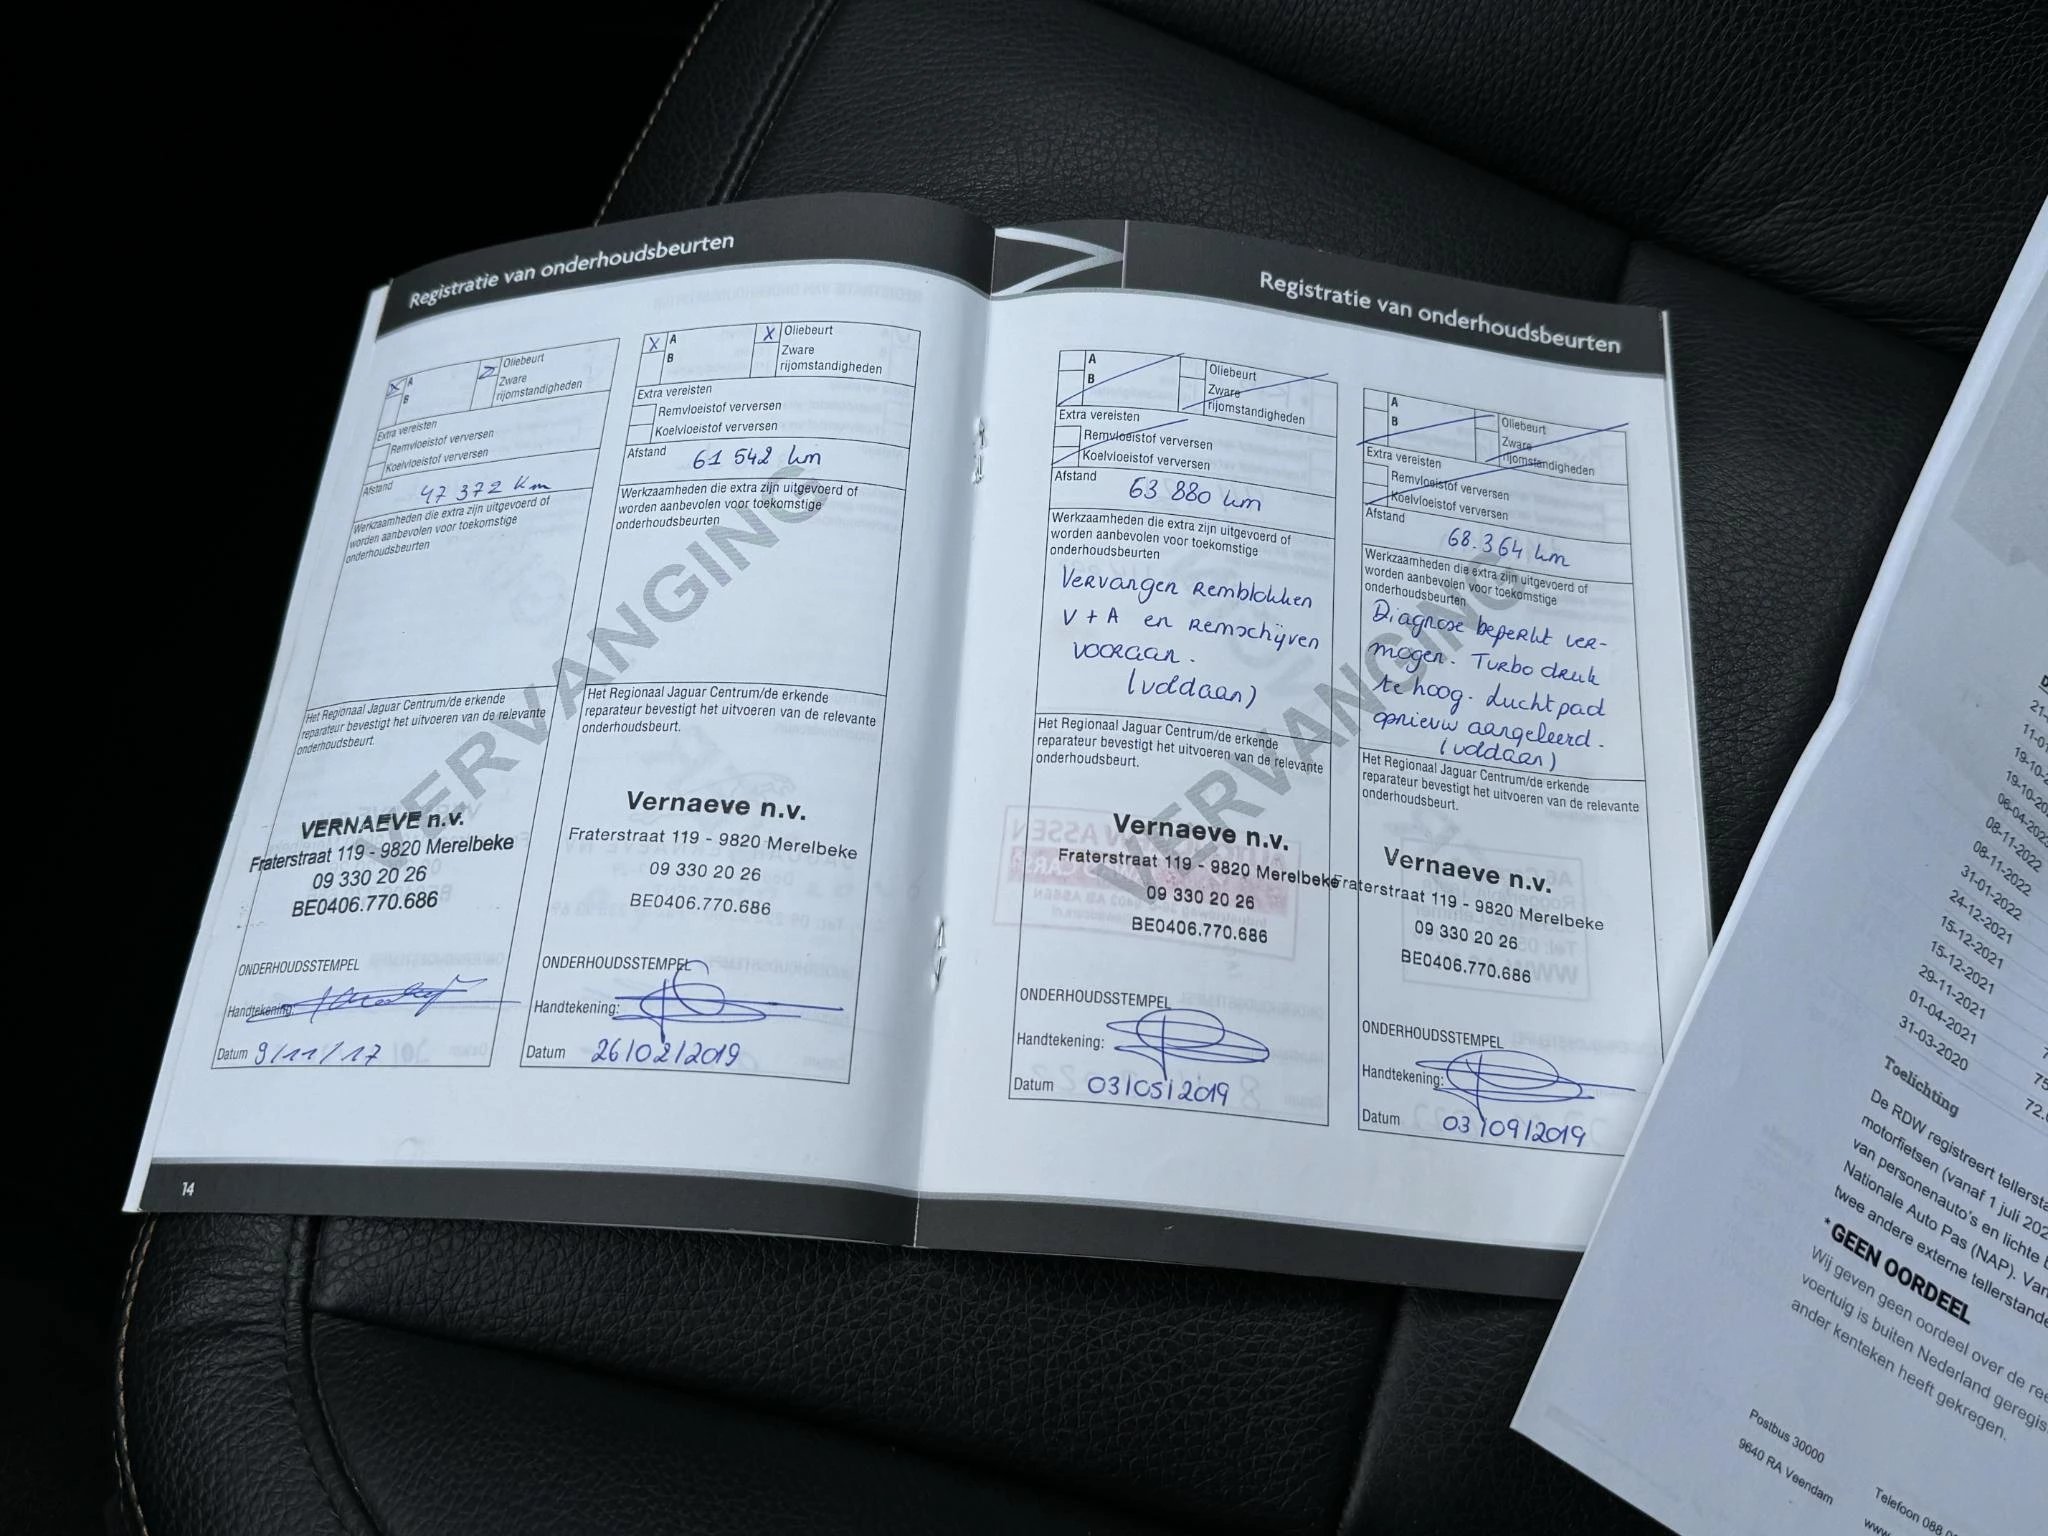 Registratie van onderhoudsbeurten
A
B
Oliebeurt
Zware
rijomstandigheden
Extra vereisten
Remvloeistof verversen
Koelvloeistof verversen
Afstand
47 372 km
Werkzaamheden die extra zijn uitgevoerd of
worden aanbevolen voor toekomstige
onderhoudsbeurten
Het Regionaal Jaguar Centrum/de erkende
reparateur bevestigt het uitvoeren van de relevante
onderhoudsbeurt.
VERNAEVE n.v.
Fraterstraat 119 - 9820 Merelbeke
09 330 20 26
BE0406.770.686
ONDERHOUDSSTEMPEL
Handtekening:
Datum 9/11/17
X A
B
X Oliebeurt
Zware
rijomstandigheden
Extra vereisten
Remvloeistof verversen
Koelvloeistof verversen
Afstand
61 542 km
Werkzaamheden die extra zijn uitgevoerd of
worden aanbevolen voor toekomstige
onderhoudsbeurten
Het Regionaal Jaguar Centrum/de erkende
reparateur bevestigt het uitvoeren van de relevante
onderhoudsbeurt.
Vernaeve n.v.
Fraterstraat 119 - 9820 Merelbeke
09 330 20 26
BE0406.770.686
ONDERHOUDSSTEMPEL
Handtekening:
Datum 26/02/2019
VERVANGING
14
Registratie van onderhoudsbeurten
A
B
Oliebeurt
Zware
rijomstandigheden
Extra vereisten
Remvloeistof verversen
Koelvloeistof verversen
Afstand
63 880 km
Werkzaamheden die extra zijn uitgevoerd of
worden aanbevolen voor toekomstige
onderhoudsbeurten
Vervangen remblokken
V + A en remschijven
vooraan.
(voldaan)
Het Regionaal Jaguar Centrum/de erkende
reparateur bevestigt het uitvoeren van de relevante
onderhoudsbeurt.
Vernaeve n.v.
Fraterstraat 119 - 9820 Merelbeke
09 330 20 26
BE0406.770.686
ONDERHOUDSSTEMPEL
Handtekening:
Datum 03/05/2019
A
B
Oliebeurt
Zware
rijomstandigheden
Extra vereisten
Remvloeistof verversen
Koelvloeistof verversen
Afstand
68.364 km
Werkzaamheden die extra zijn uitgevoerd of
worden aanbevolen voor toekomstige
onderhoudsbeurten
Diagnose beperkt ver-
mogen. Turbo druk
te hoog. Luchtpad
opnieuw aangeleerd.
(voldaan)
Het Regionaal Jaguar Centrum/de erkende
reparateur bevestigt het uitvoeren van de relevante
onderhoudsbeurt.
Vernaeve n.v.
Fraterstraat 119 - 9820 Merelbeke
09 330 20 26
BE0406.770.686
ONDERHOUDSSTEMPEL
Handtekening:
Datum 03/09/2019
VERVANGING
08-11-2022
08-11-2022
31-01-2022
24-12-2021
15-12-2021
15-12-2021
29-11-2021
01-04-2021
31-03-2020
Toelichting
De RDW registreert
motorfietsen (vanaf 1 juli
van personenauto's en lichte
Nationale Auto Pas (NAP).
twee andere externe
*GEEN OORDEEL
Wij geven geen oordeel over de
voertuig is buiten Nederland
ander kenteken heeft gekregen.
Postbus 30000
9640 RA Veendam
Telefoon 088